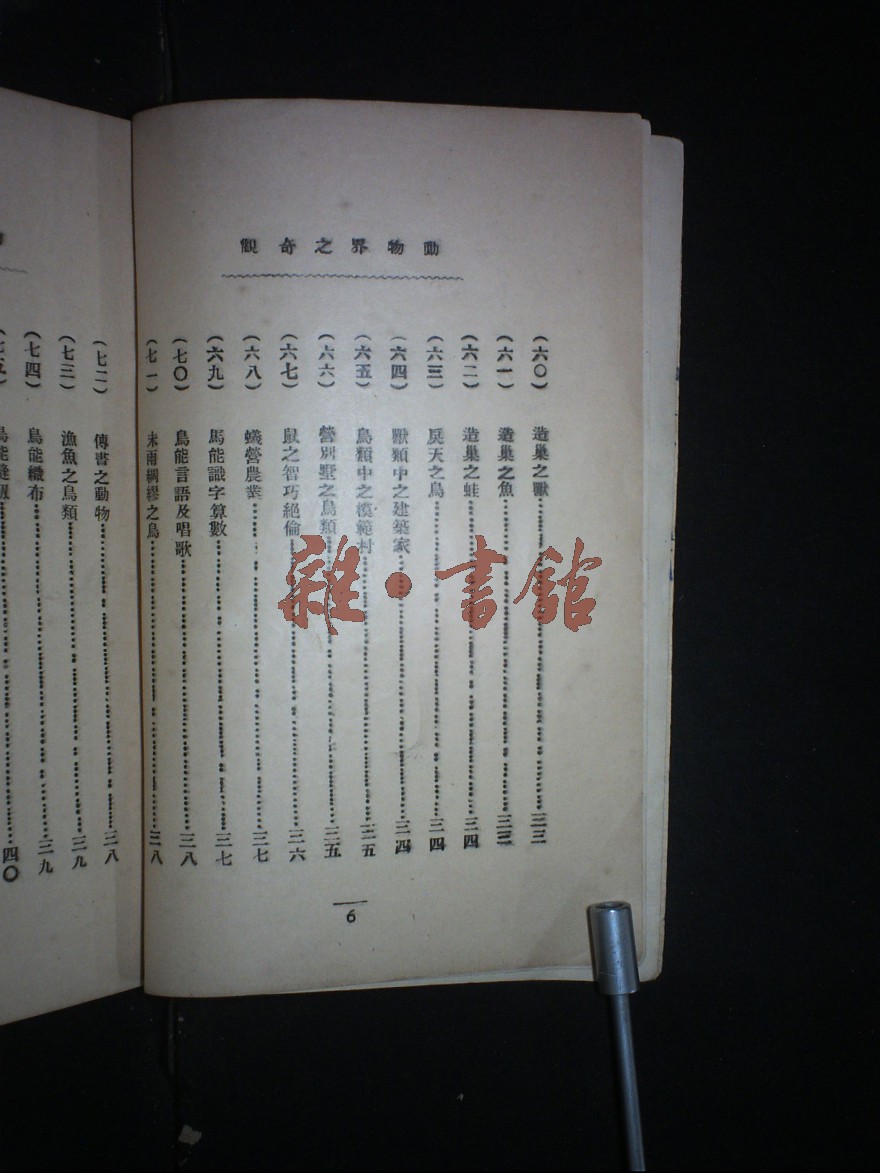 動物界之奇觀
(六〇) 造巢之獸 三三
(六一) 造巢之魚 三三
(六二) 造巢之蛙 三四
(六三) 戾天之鳥 三四
(六四) 獸類中之建築家 三四
(六五) 鳥類中之模範村 三五
(六六) 營別墅之鳥類 三五
(六七) 鼠之智巧絕倫 三六
(六八) 蟻營農業 三七
(六九) 馬能識字算數 三七
(七〇) 鳥能言語及唱歌 三八
(七一) 未雨綢繆之鳥 三八
6
(七二) 傳書之動物 三八
(七三) 漁魚之鳥類 三九
(七四) 鳥能織布 三九
(七五) 鳥能縫紉 四〇
雜·書館